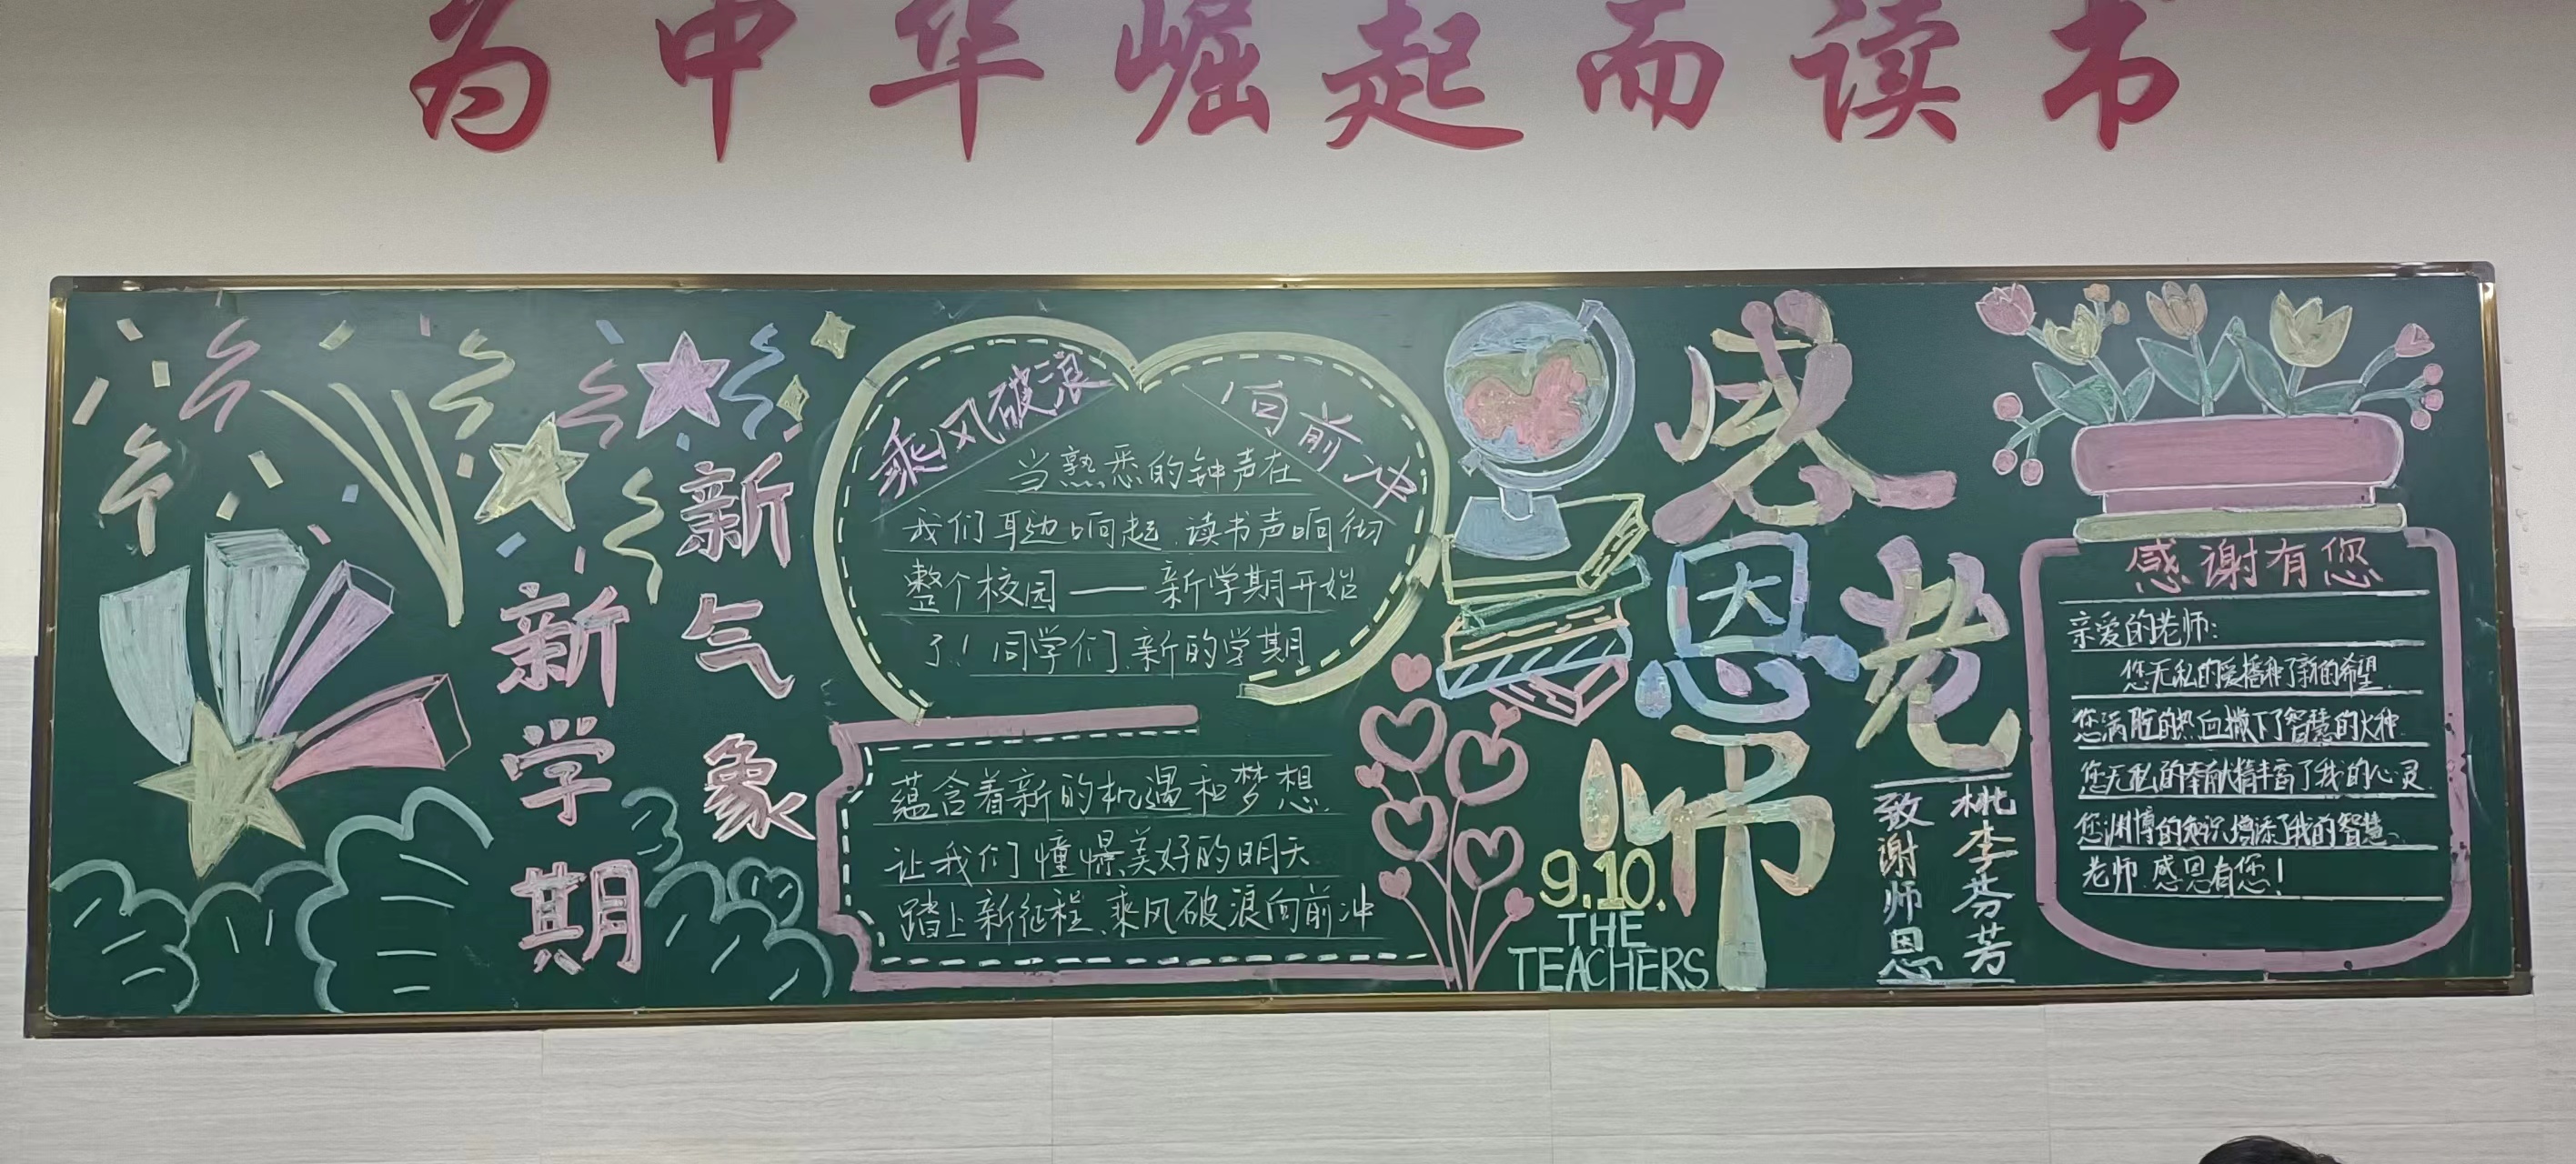 为中华崛起而读书
新气象
新学期
乘风破浪
向前冲
当熟悉的钟声在
我们耳边响起.读书声响彻
整个校园——新学期开始
了!同学们.新的学期
蕴含着新的机遇和梦想.
让我们憧憬美好的明天.
踏上新征程、乘风破浪向前冲
感恩老师
9.10.
THE
TEACHERS
桃李芬芳
致谢师恩
感谢有您
亲爱的老师:
您无私的爱播种了新的希望.
您满腔的热血撒下了智慧的火种.
您无私的奉献精丰富了我的心灵.
您渊博的知识增添了我的智慧、
老师.感恩有您!